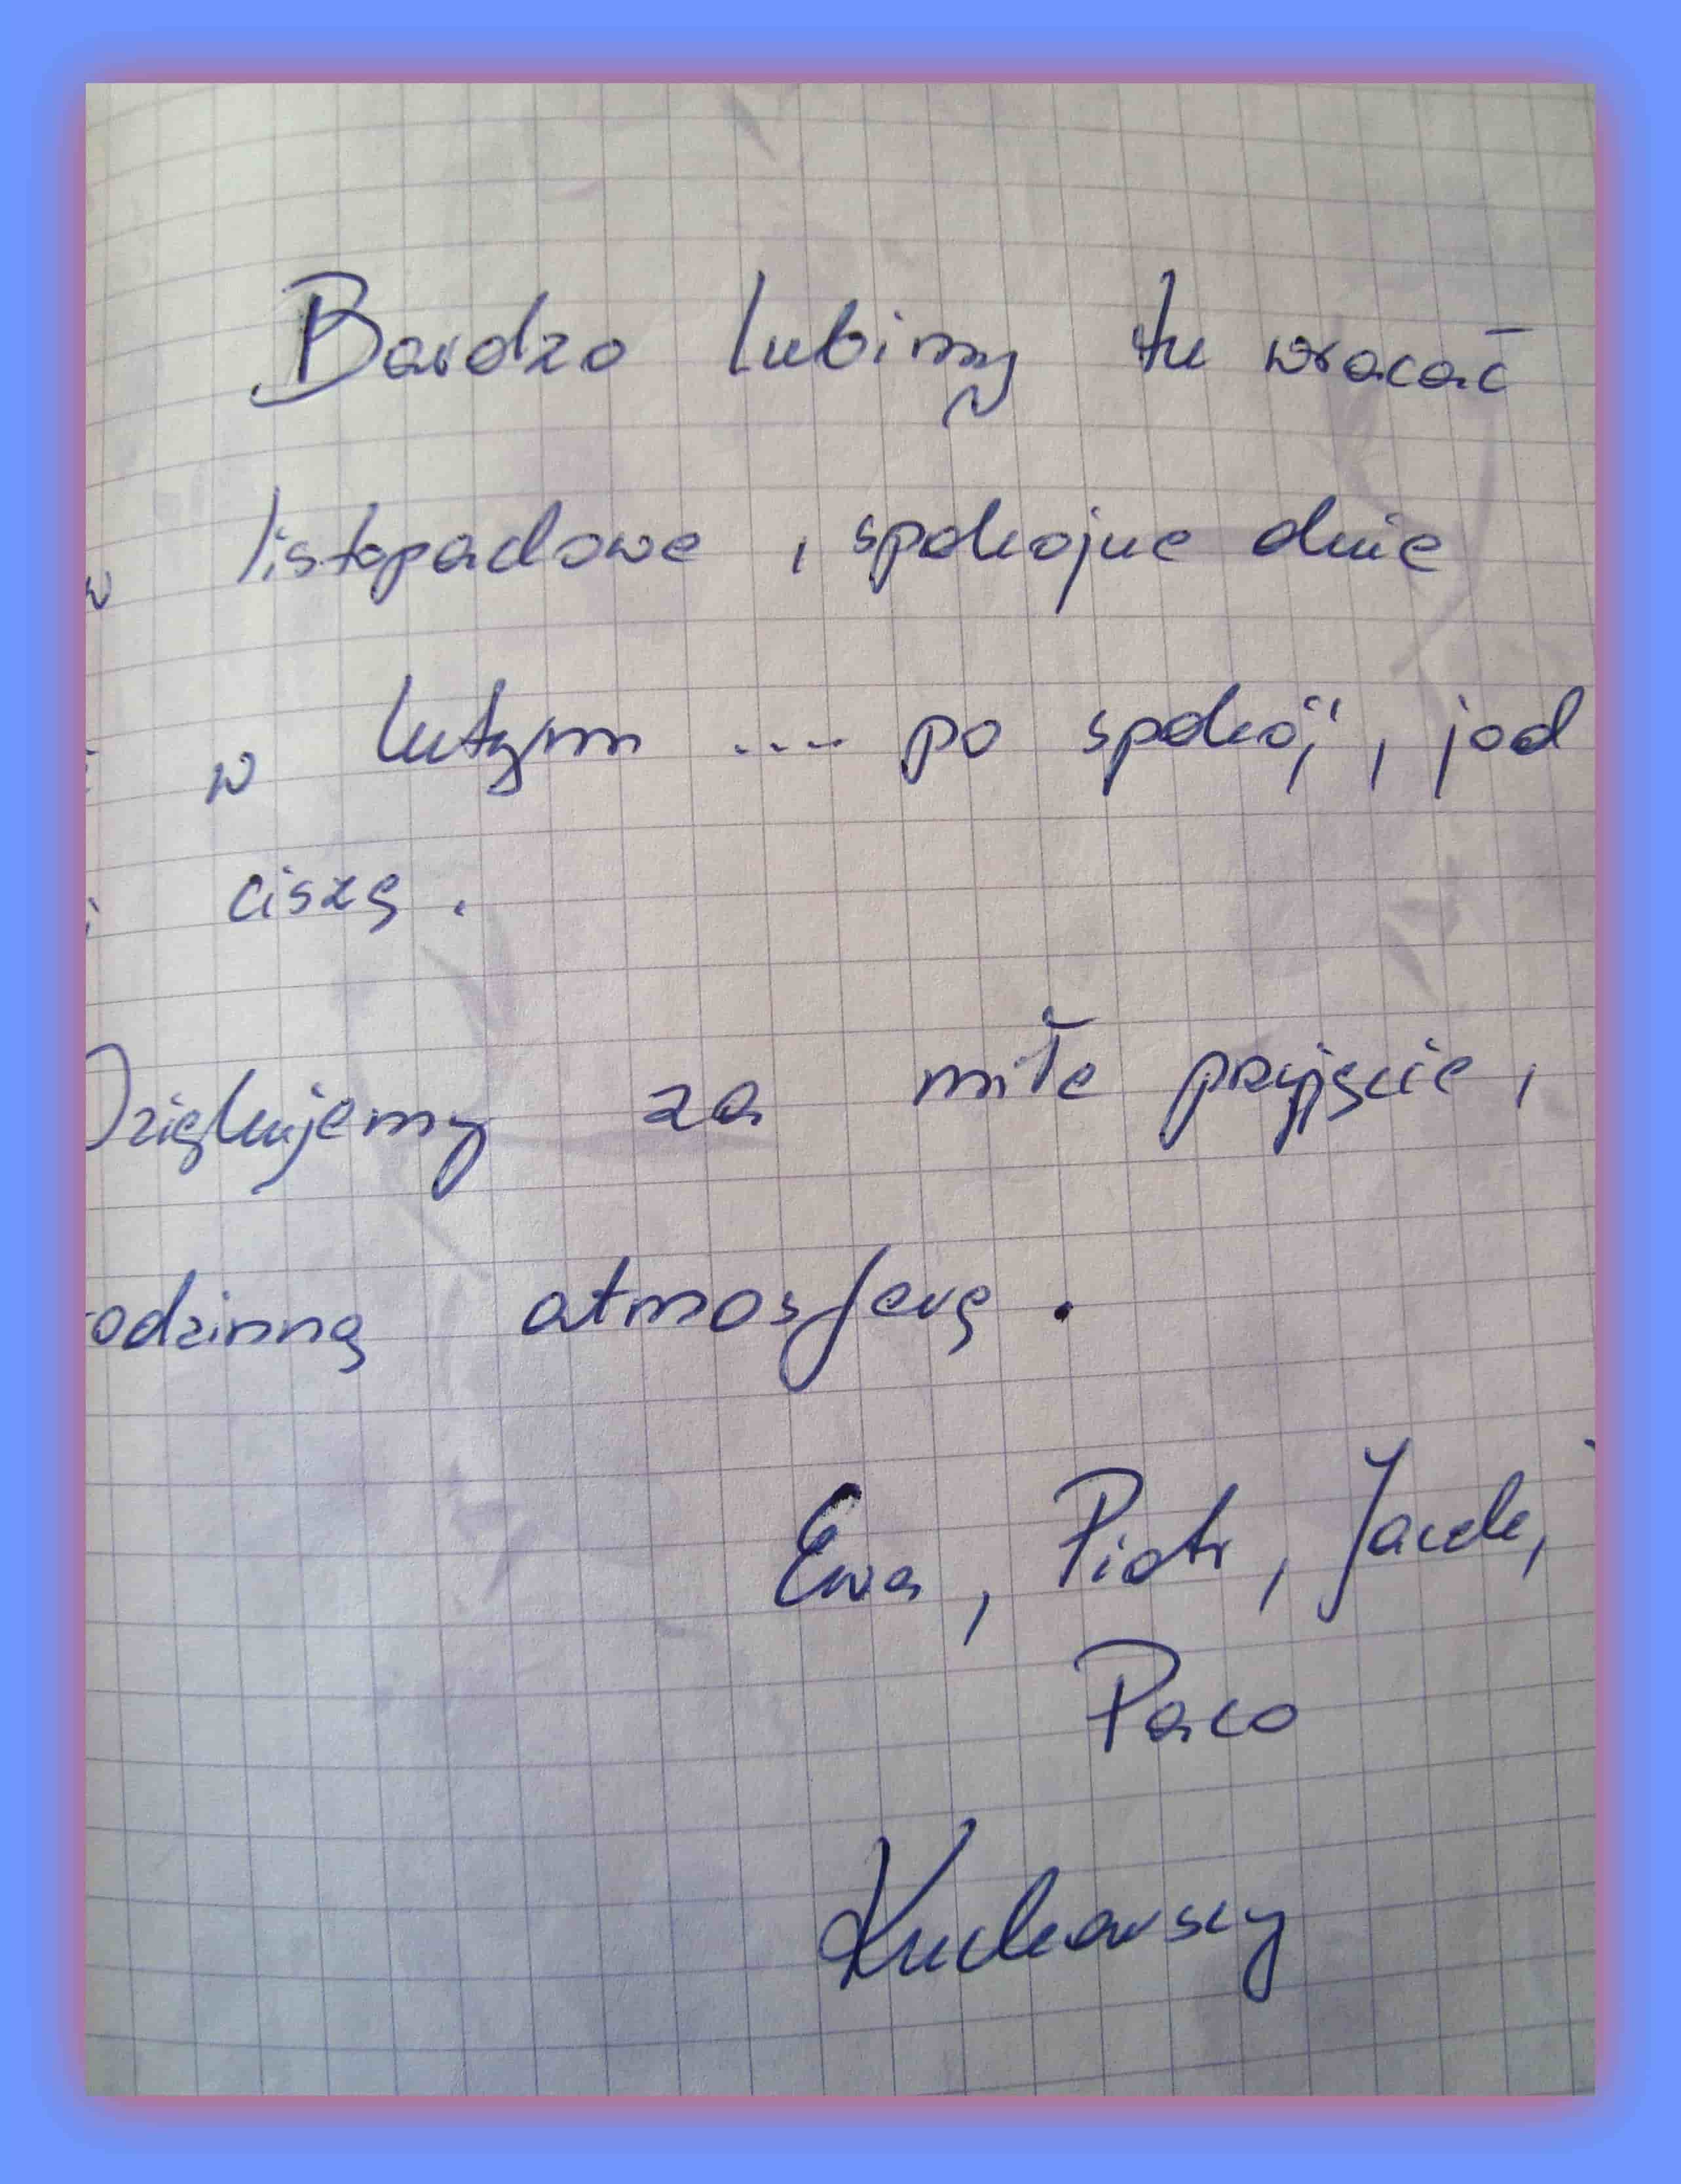 Bardzo lubimy tu wracać
w listopadowe, spokojne dnie
w lutym .... po spokój, jod
i ciszę.
Dziękujemy za miłe przyjęcie,
rodzinną atmosferę.
Ewa, Piotr, Jacek,
Paco
Kucharscy